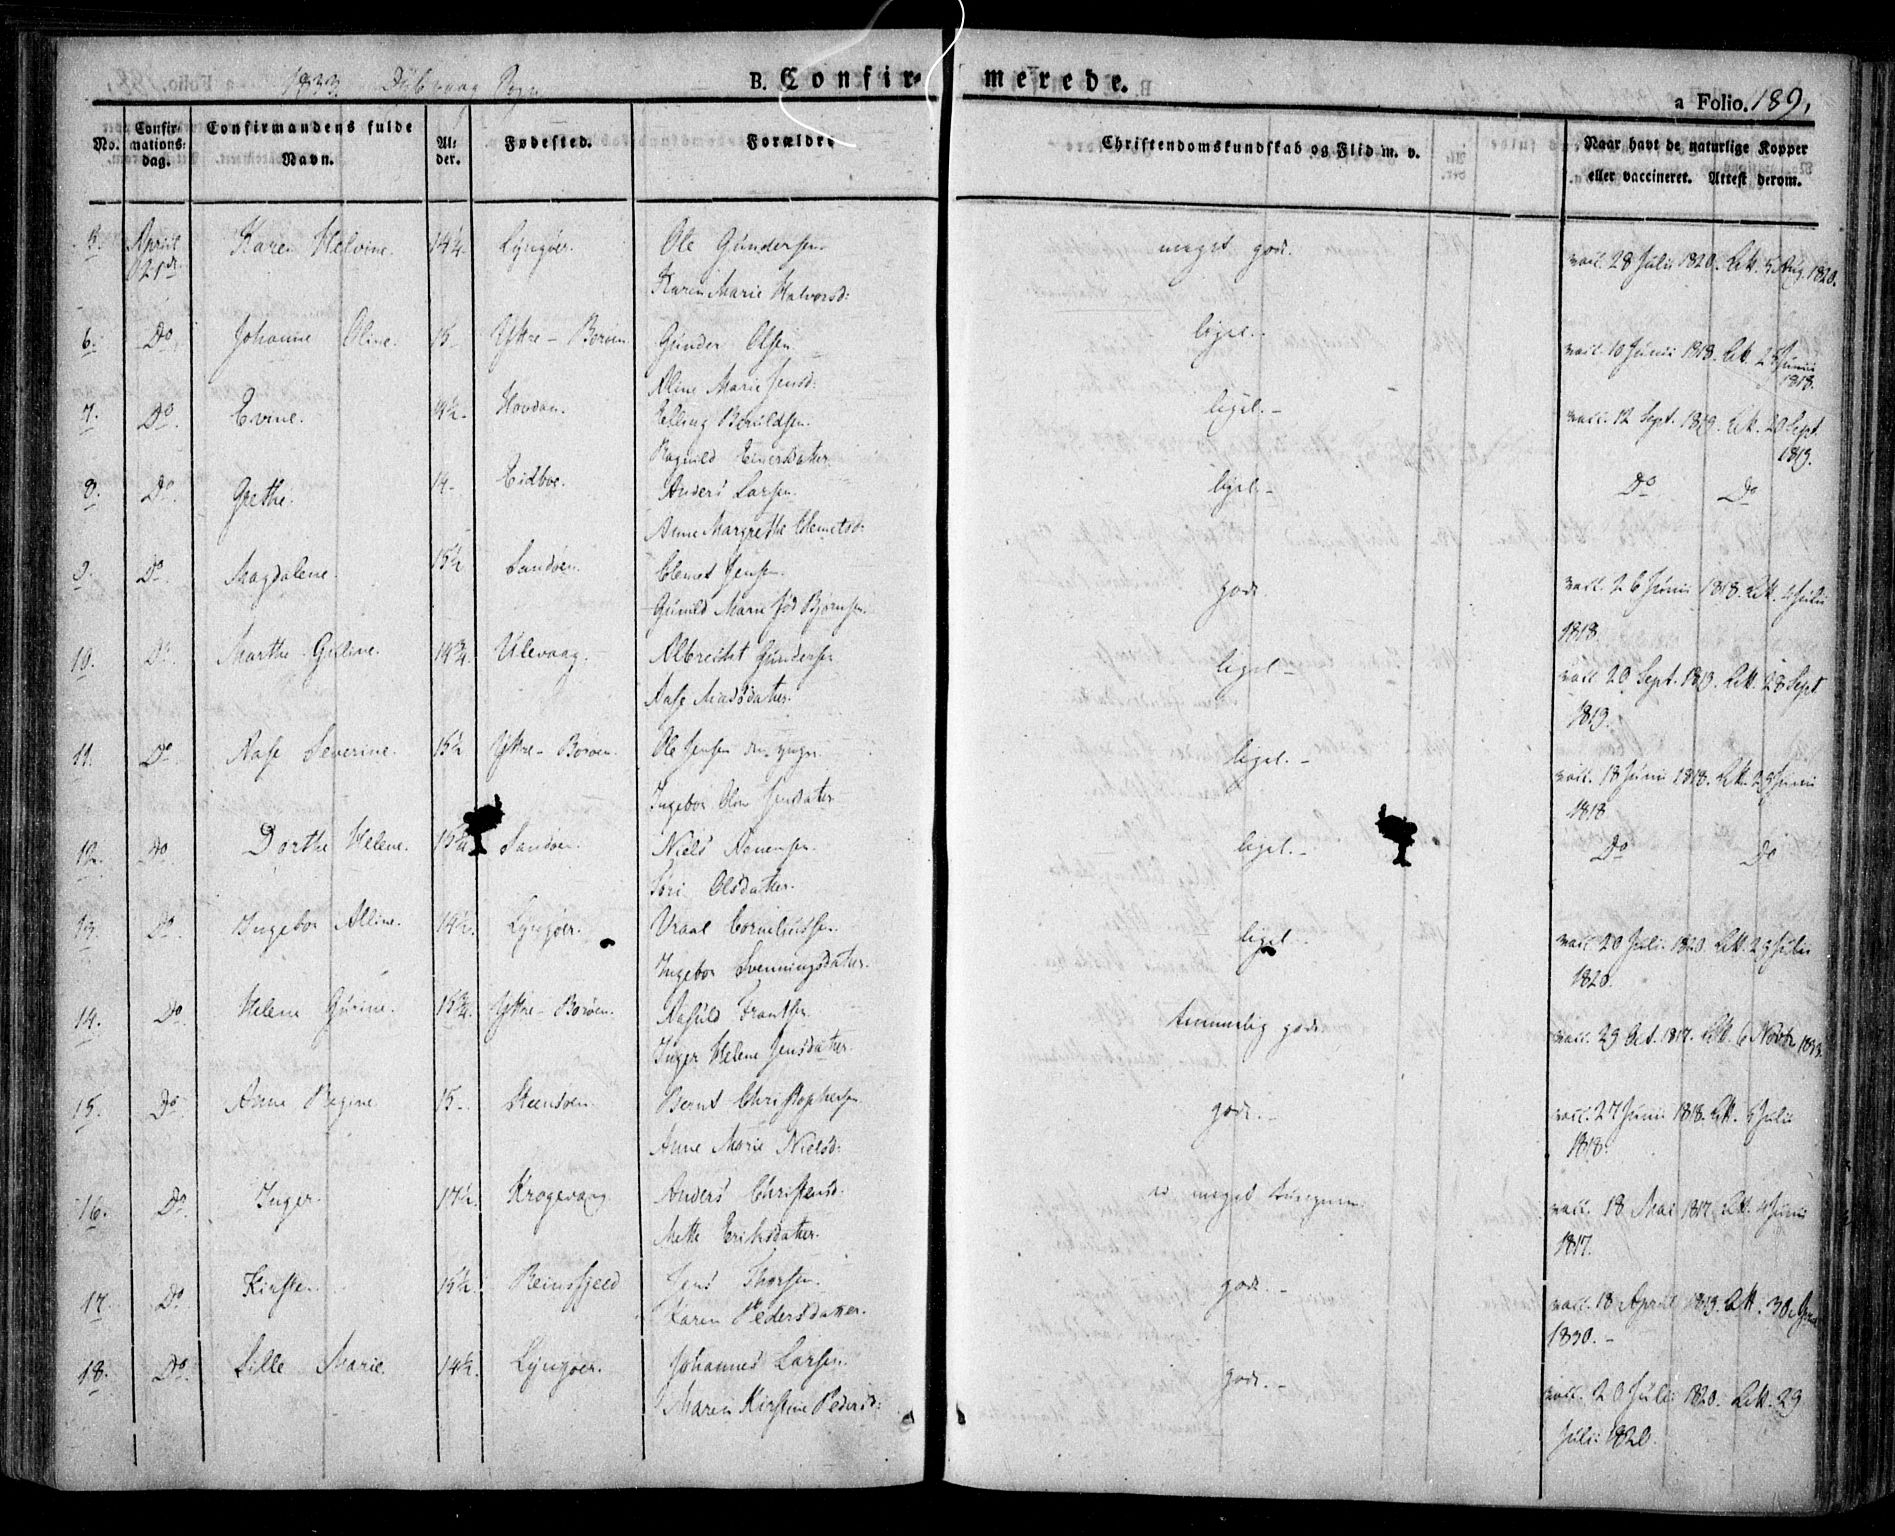 1833 Dybvaag Sogn
B. Confirmerede.
a Folio. 189,
No.
Confirmations-dag.
Confirmandens fulde Navn.
Alder.
Fødested.
Forældre
Christendomskundskab og Flid m. v.
Naar havt de naturlige Kopper eller vaccineret. Attest derom.
5. April 21de Karen Helvine. 14¼. Lyngøer. Ole Gundersen meget godt. vacc. 28 Julii 1820. Att. 5 Aug 1820.
Karen Marie Halvorsd:
6. Do Johanne Oline. 15 Ystre-Borøen Gunder Olsen ligel. vacc. 10 Junii 1818. Att. 25 Junii 1818.
Aline Marie Jensd:
7. Do. Evine. 14½. Hovdan. Elling Beruldsen. ligel.- vacc. 12 Sept. 1819. Att. 20 Sept. 1819.
Ragnild Einersdatter
8. Do. Grethe. 14- Eidboe. Anders Larsen ligel.- Do Do
Anne Margrethe Clemetsd:
9. Do. Magdalene. 15½ Sandøen. Clemet Jensen. godt. vacc. 26 Junii 1818. Att. 4 Julii 1818.
Gunild Marie fød Bjørnsen.
10. Do. Marthe Geline. 14¾. Ulevaag. Albrecht Gundersen ligel- vacc. 20 Sept. 1819. Att. 28 Sept 1819.
Aase Madsdatter
11. Do Aase Severine. 15½ Ystre-Borøen. Ole Jensen den yngre ligel.- vacc. 18 Junii 1818. Att. 29 Junii 1818
Ingebor Jensdatter
12. Do Dorthe Helene. 15¾ Sandøen. Niels Aanensen. ligel.- Do Do
Siri Olsdatter.
13. Do. Ingebor Alline. 14½. Lyngøer. Vraal Corneliussen ligel vacc. 20 Juli 1820 Att. 29 Julii 1820.
Ingebor Svenningsdatter.
14. Do Helene Gurine. 15¾. Ystre-Borøen. Aasuld Frantsen temmelig godt vacc. 29 Oct. 1817. Att. 6 Novbr
Inger Helene Jensdatter
15. Do Anne Regine 15- Steensøen Bernt Christophersen godt.- vacc. 27 Junii 1818. Att. 5 Julii 1818.
Anne Marie Nielsd:
16. Do. Inger. 17½. Krogevaag Anders Christensd: meget vacc. 18 Mai 1817 Att. 4 Junii 1817.
Mette Eriksdatter.
17. Do Kirsten. 15½ Reinsfjeld Jens Thorsen. godt.- vacc. 18 April 1819. Att. 30 1830.-
Karen Pedersdatter
18. Do. Sille Marie. 14½. Lyngøer. Johannes Larsen godt.- vacc. 20 Juli 1820. Att. 29 Juli 1820.
Maren Kirstine Pedersd: